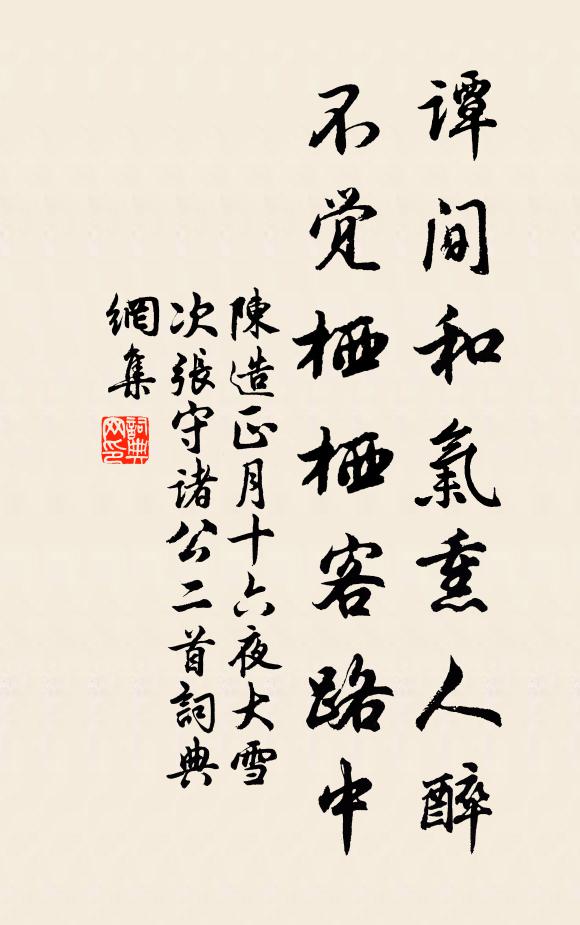 谭间和氣熏人醉
不觉栖栖客路中
陳造正月十六夜大雪
次張守诸公二首詞典
網集
詞典
网印